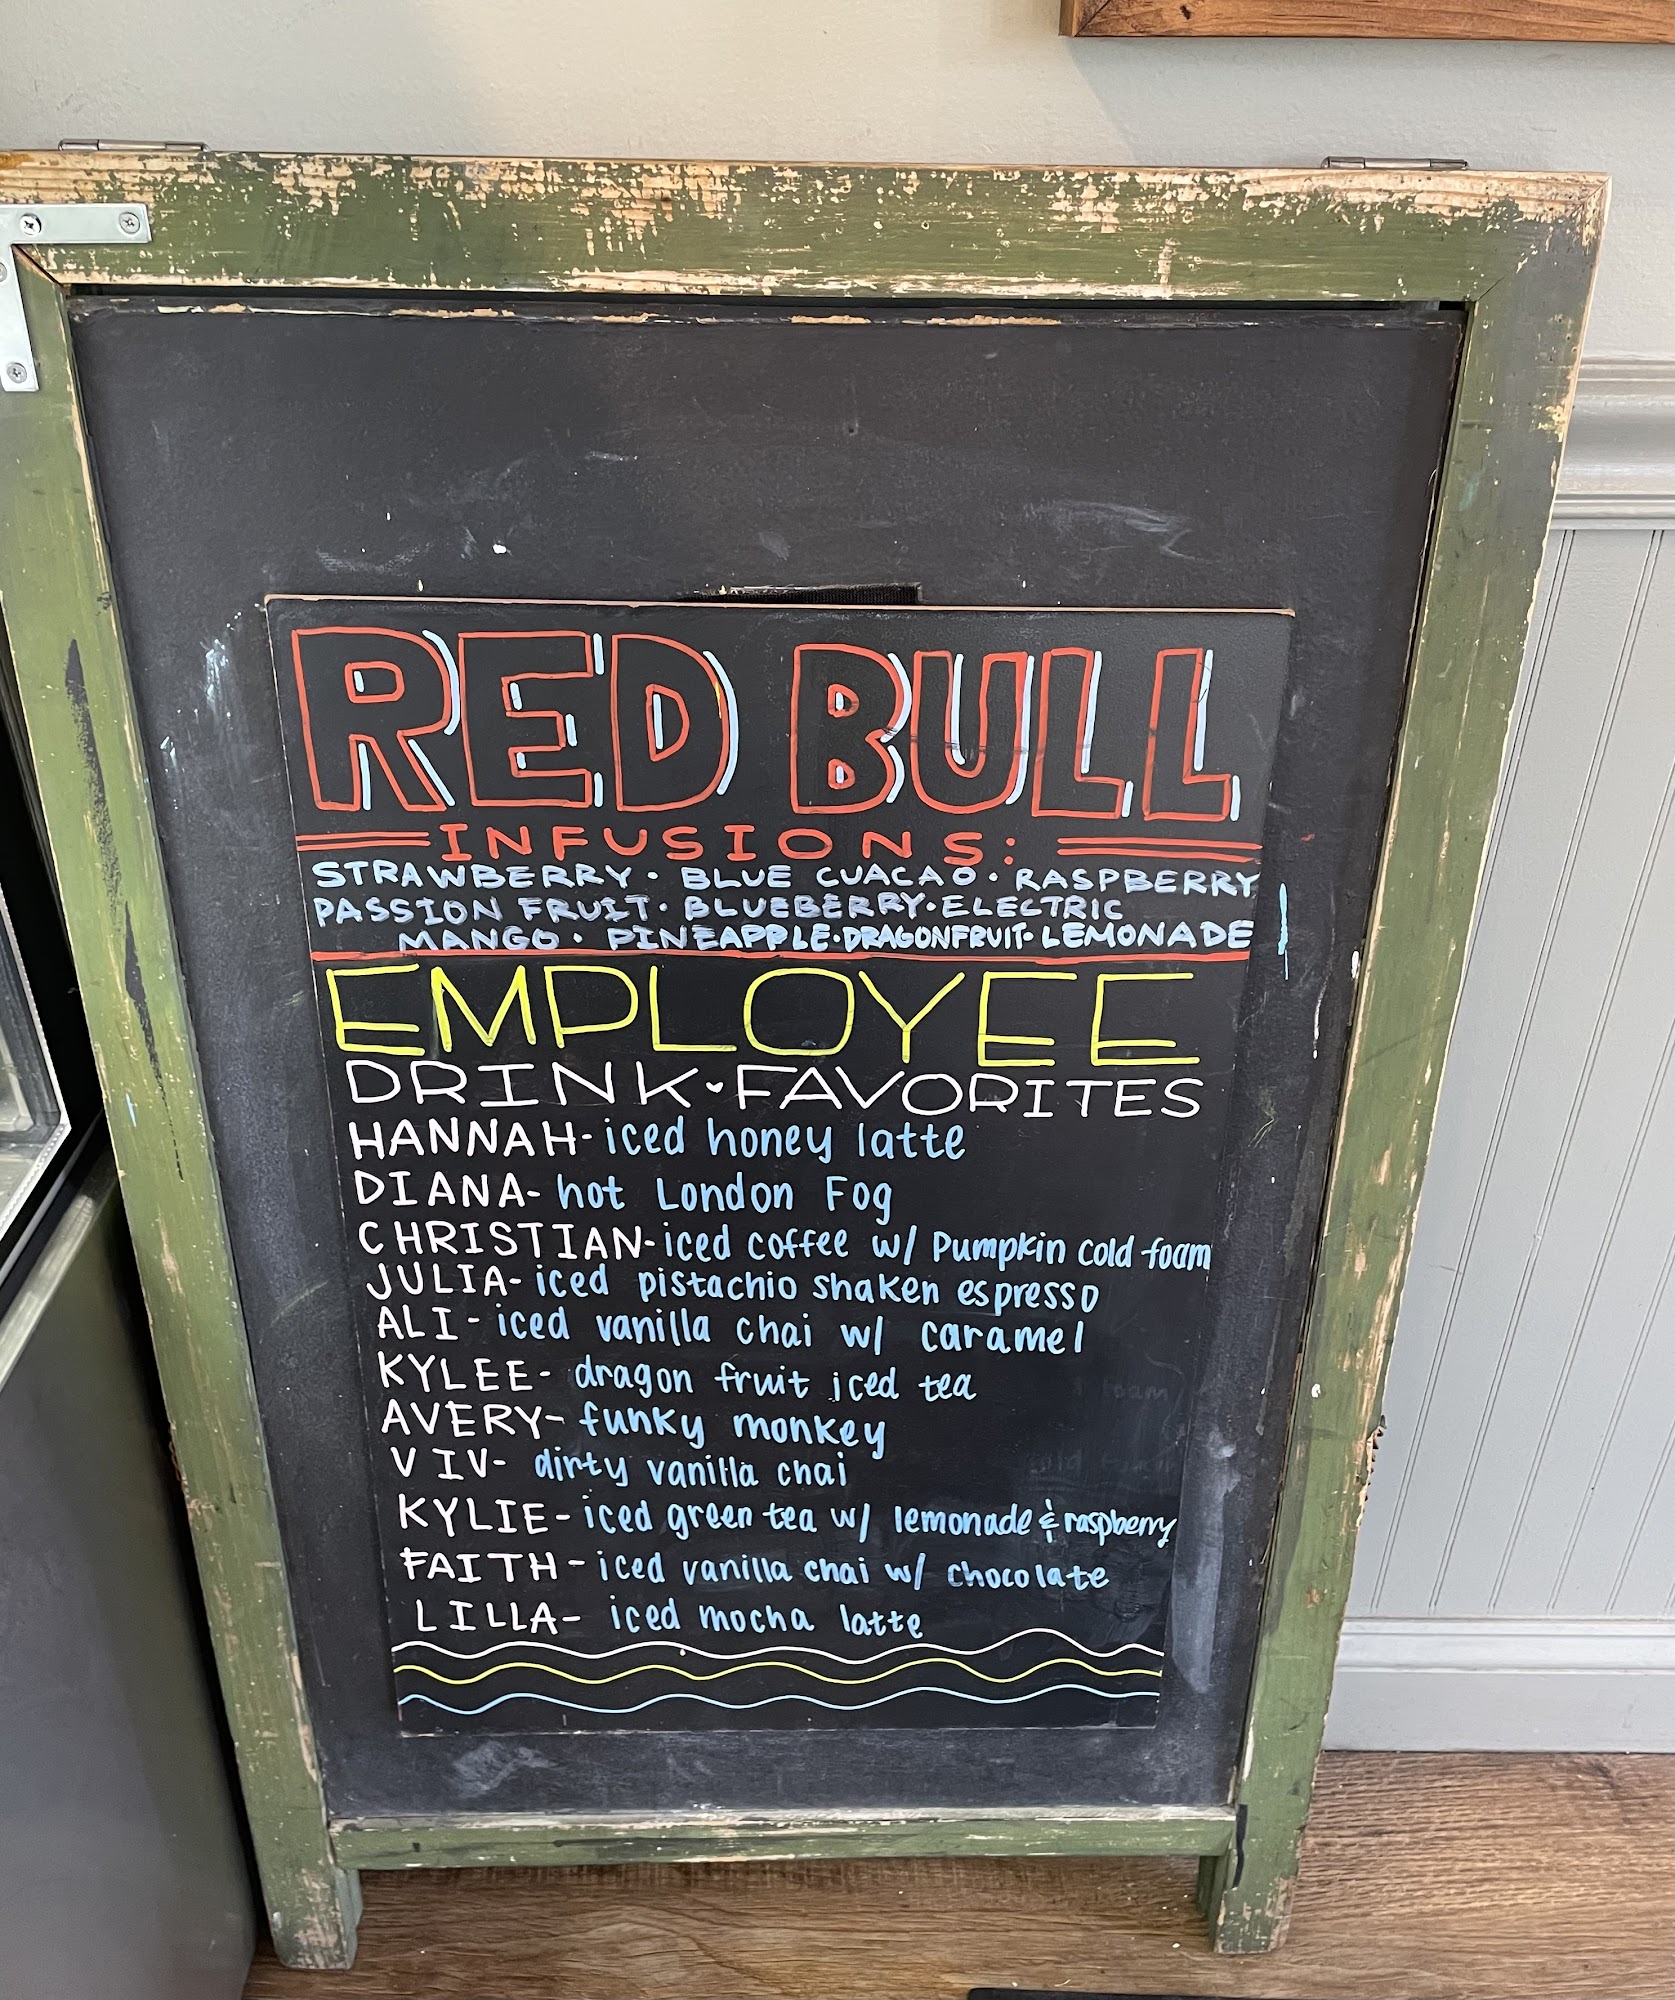 RED BULL
INFUSIONS:
STRAWBERRY · BLUE CUACAO · RASPBERRY
PASSION FRUIT · BLUEBERRY · ELECTRIC
MANGO · PINEAPPLE · DRAGONFRUIT · LEMONADE
EMPLOYEE
DRINK FAVORITES
HANNAH- iced honey latte
DIANA- hot London Fog
CHRISTIAN- iced coffee w/ Pumpkin cold foam
JULIA- iced pistachio shaken espresso
ALI- iced vanilla chai w/ caramel
KYLEE- dragon fruit iced tea
AVERY- funky monkey
VIV- dirty vanilla chai
KYLIE- iced green tea w/ lemonade & raspberry
FAITH- iced vanilla chai w/ chocolate
LILLA- iced mocha latte